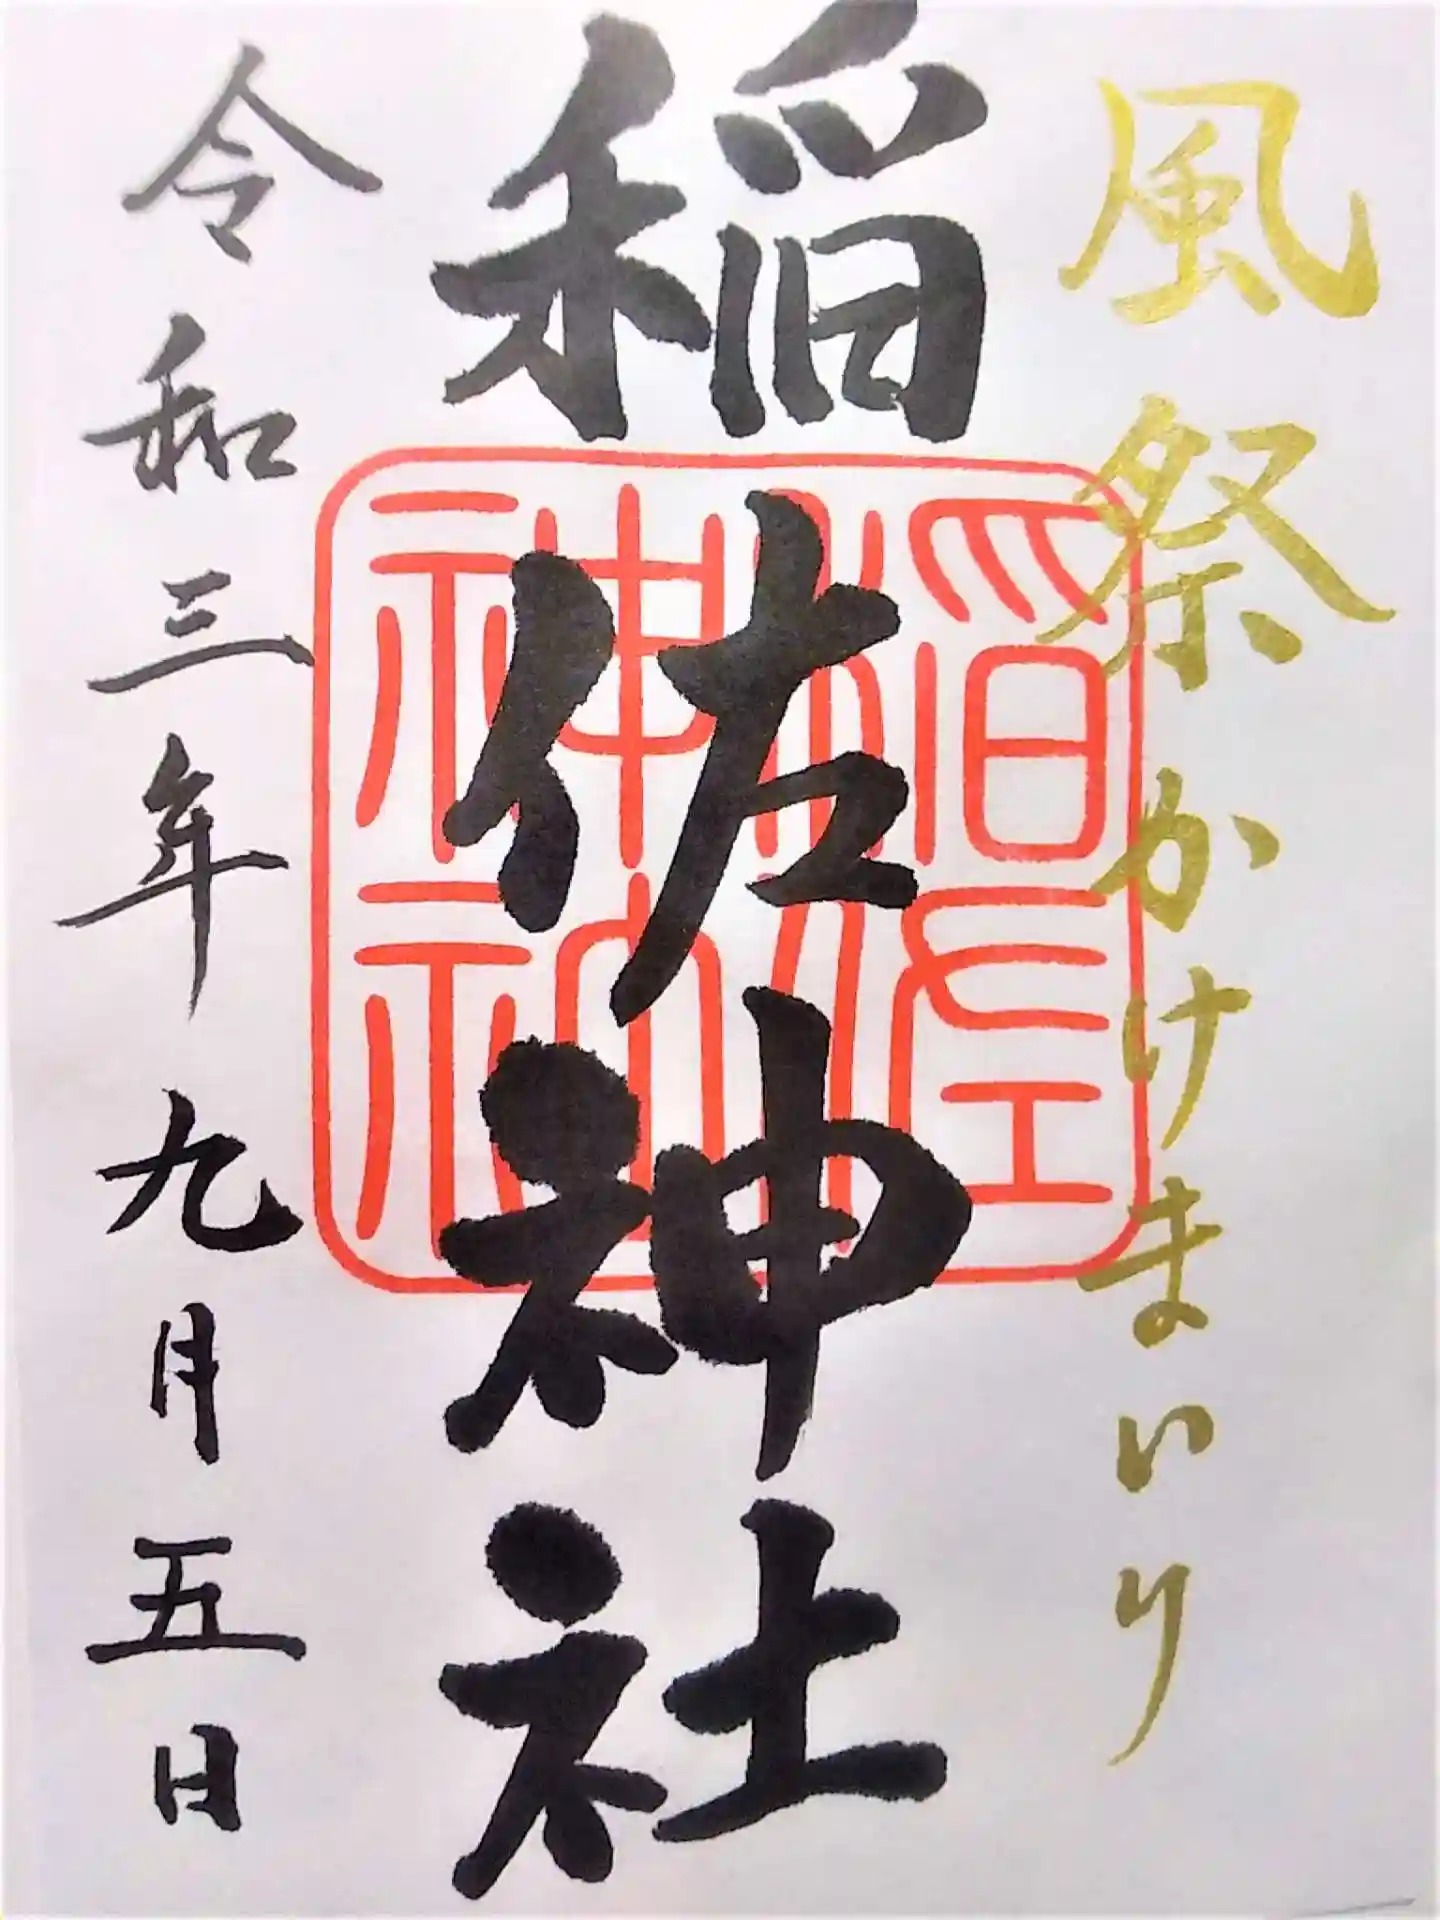 風祭かけまいり
稲佐神社
令和三年九月五日